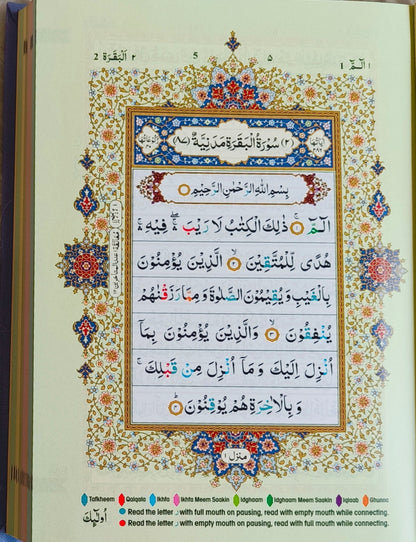 ٢ اَلْبَقَرَة 2
5 ٥
1 الٓـمّٓ ١
(٢) سُوْرَةُ الْبَقَرَةِ مَدَنِيَّةٌ (٨٧)
بِسْمِ اللّٰهِ الرَّحْمٰنِ الرَّحِيْمِ
الٓمّٓ ۚ ذٰلِكَ الْكِتٰبُ لَا رَيْبَ ۛۖ فِيْهِ ۛۚ
هُدًى لِّلْمُتَّقِيْنَ ۙ الَّذِيْنَ يُؤْمِنُوْنَ
بِالْغَيْبِ وَيُقِيْمُوْنَ الصَّلٰوةَ وَمِمَّا رَزَقْنٰهُمْ
يُنْفِقُوْنَ ۙ وَالَّذِيْنَ يُؤْمِنُوْنَ بِمَآ
اُنْزِلَ اِلَيْكَ وَمَآ اُنْزِلَ مِنْ قَبْلِكَ ۚ
وَبِالْاٰخِرَةِ هُمْ يُوْقِنُوْنَ ؕ
منزل ١
Tafkheem Qalqala Ikhfa Ikhfa Meem Saakin Idghaam Idghaam Meem Saakin Iqlaab Ghunna
Read the letter ر with full mouth on pausing, read with empty mouth while connecting.
Read the letter ر with empty mouth on pausing, read with full mouth while connecting.
اُولٰٓئِكَ